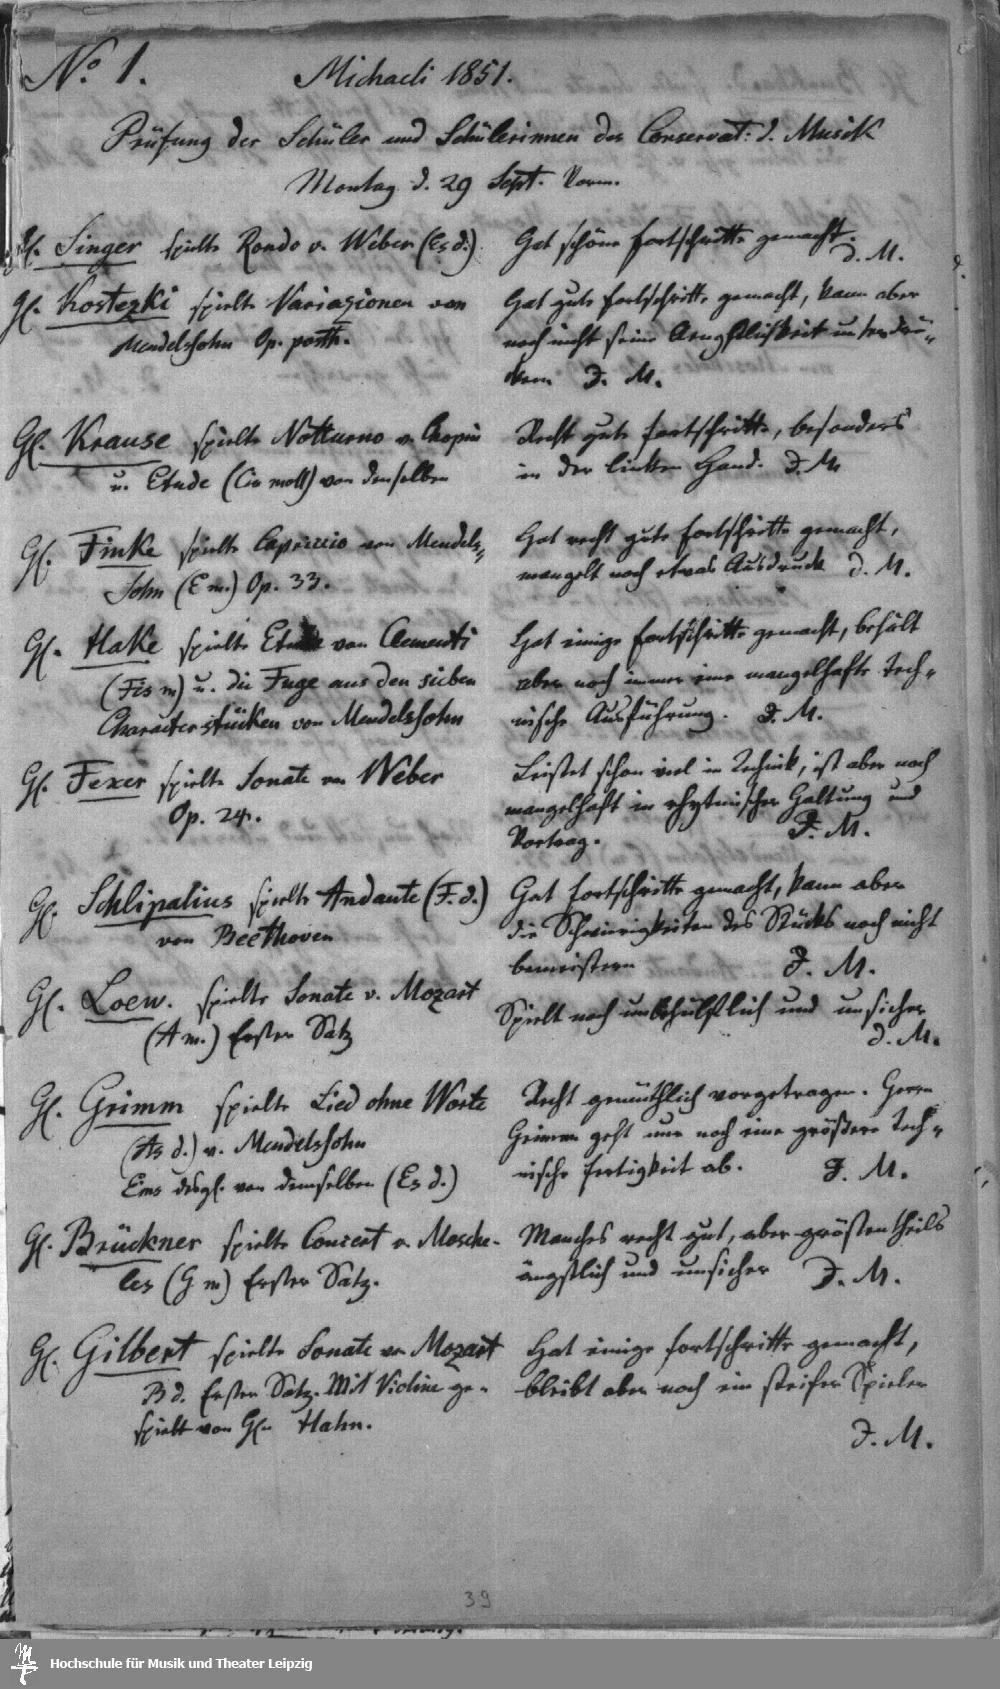 No 1.
Michaeli 1851.
Prüfung der Schüler und Schülerinnen des Conservat: d. Musik
Montag d. 29 Sept. Vorm.
H. Singer spielte Rondo v. Weber (Es d.)
Hat schöne Fortschritte gemacht.
J. M.
H. Kostezki spielte Variazionen von
Mendelssohn Op. posth.
Hat gute Fortschritte gemacht, kann aber
noch nicht seine Aengstlichkeit unterdrü-
cken J. M.
H. Krause spielte Notturno v. Chopin
u. Etude (Cis moll) von denselben
Recht gute Fortschritte, besonders
in der linken Hand. J. M.
H. Finke spielte Capriccio von Mendels-
sohn (E m.) Op. 33.
Hat recht gute Fortschritte gemacht,
mangelt noch etwas Ausdruck J. M.
H. Hake spielte Etude von Clementi
(Fis m) u. die Fuge aus den sieben
Characterstücken von Mendelssohn
Hat einige Fortschritte gemacht, behält
aber noch immer eine mangelhafte tech-
nische Ausführung. J. M.
H. Fexer spielte Sonate von Weber
Op. 24.
Leistet schon viel in Technik, ist aber noch
mangelhaft in rhytmischer Haltung und
Vortrag. J. M.
H. Schlipalius spielte Andante (F. d.)
von Beethoven
Hat Fortschritte gemacht, kann aber
die Schwierigkeiten des Stücks noch nicht
bemeistern J. M.
H. Loew. spielte Sonate v. Mozart
(A m.) Erster Satz
Spielt noch unbehülflich und unsicher
J. M.
H. Grimm spielte Lied ohne Worte
(As d.) v. Mendelssohn
Eins desgl. von demselben (Es d.)
Recht gemüthlich vorgetragen. Herrn
Grimm geht nur noch eine größere tech-
nische Fertigkeit ab. J. M.
H. Brückner spielte Concert v. Mosche-
les (G m) Erster Satz.
Manches recht gut, aber größtentheils
ängstlich und unsicher J. M.
H. Gilbert spielte Sonate von Mozart
B d. Erster Satz. Mit Violine ge-
spielt von Hn Hahn.
Hat einige Fortschritte gemacht,
bleibt aber noch ein steifer Spieler
J. M.
39
Hochschule für Musik und Theater Leipzig